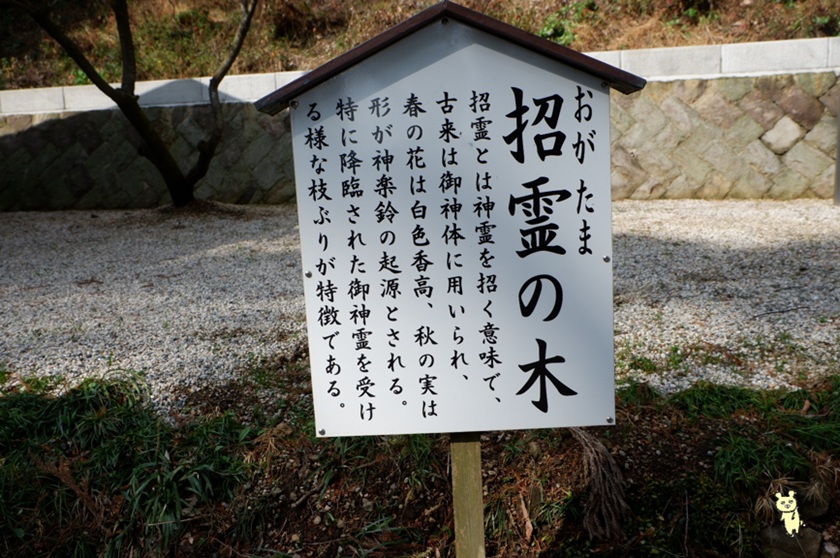 おがたま
招霊の木
招霊とは神霊を招く意味で、
古来は御神体に用いられ、
春の花は白色香高、秋の実は
形が神楽鈴の起源とされる。
特に降臨された御神霊を受け
る様な枝ぶりが特徴である。